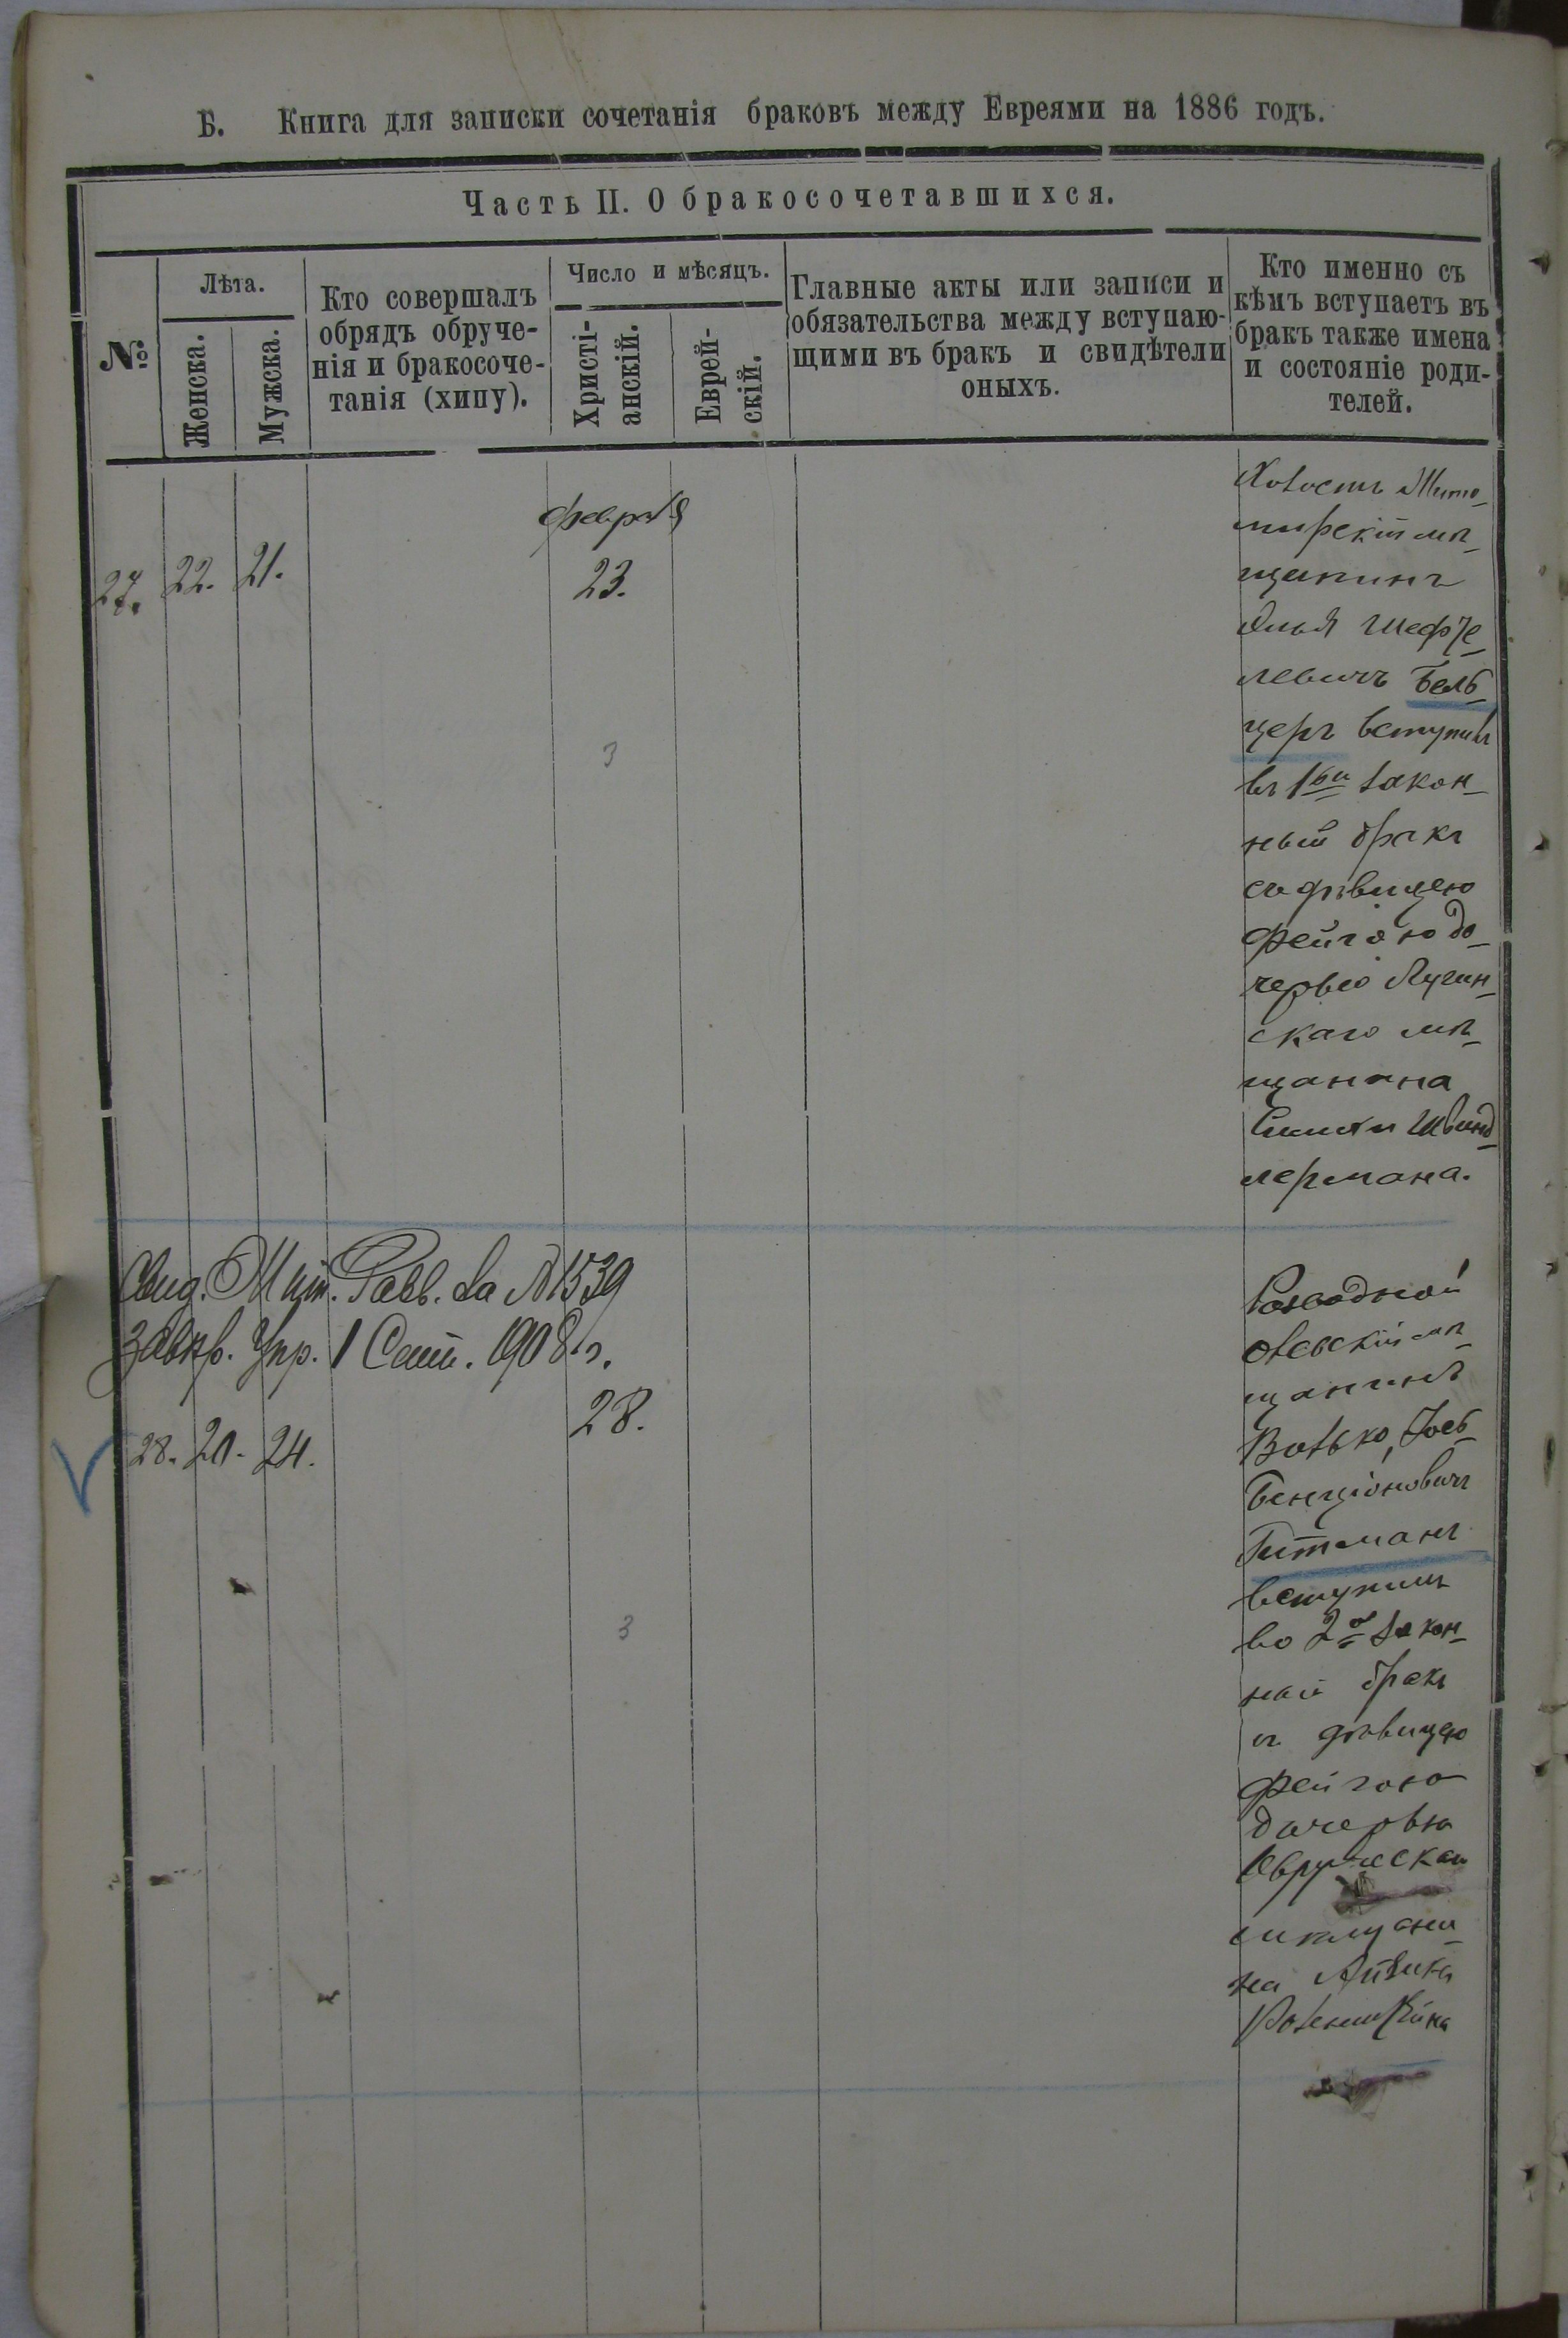 Б. Книга для записки сочетанія браковъ между Евреями на 1886 годъ.
Часть II. О бракосочетавшихся.
№
Лѣта.
Женска.
Мужска.
Кто совершалъ
обрядъ обруче-
нія и бракосоче-
танія (хипу).
Число и мѣсяцъ.
Христі-
анскій.
Еврей-
скій.
Главные акты или записи и
обязательства между вступаю-
щими въ бракъ и свидѣтели
оныхъ.
Кто именно съ
кѣмъ вступаетъ въ
бракъ также имена
и состояніе роди-
телей.
февраля
27. 22. 21. 23.
3
Холостъ Жито-
мирскій мѣ-
щанинъ
Элья Шефте-
левичъ Бель-
церъ вступилъ
въ 1ый закон-
ный бракъ
съ дѣвицею
Фейгою до-
черью Лугин-
скаго мѣ-
щанина
Симхи Швинд-
лермана.
Свид. Жит. Равв. за № 1539
завѣр. Упр. 1 Сент. 1908 г.
28. 20. 24. 28.
3
Разводной
Олевскій мѣ-
щанинъ
Волько Іось
Бенціоновичъ
Гитманъ
вступилъ
во 2й закон-
ный бракъ
съ дѣвицею
Фейгою
дочерью
Овручскаго
Айзика
Розенштейна